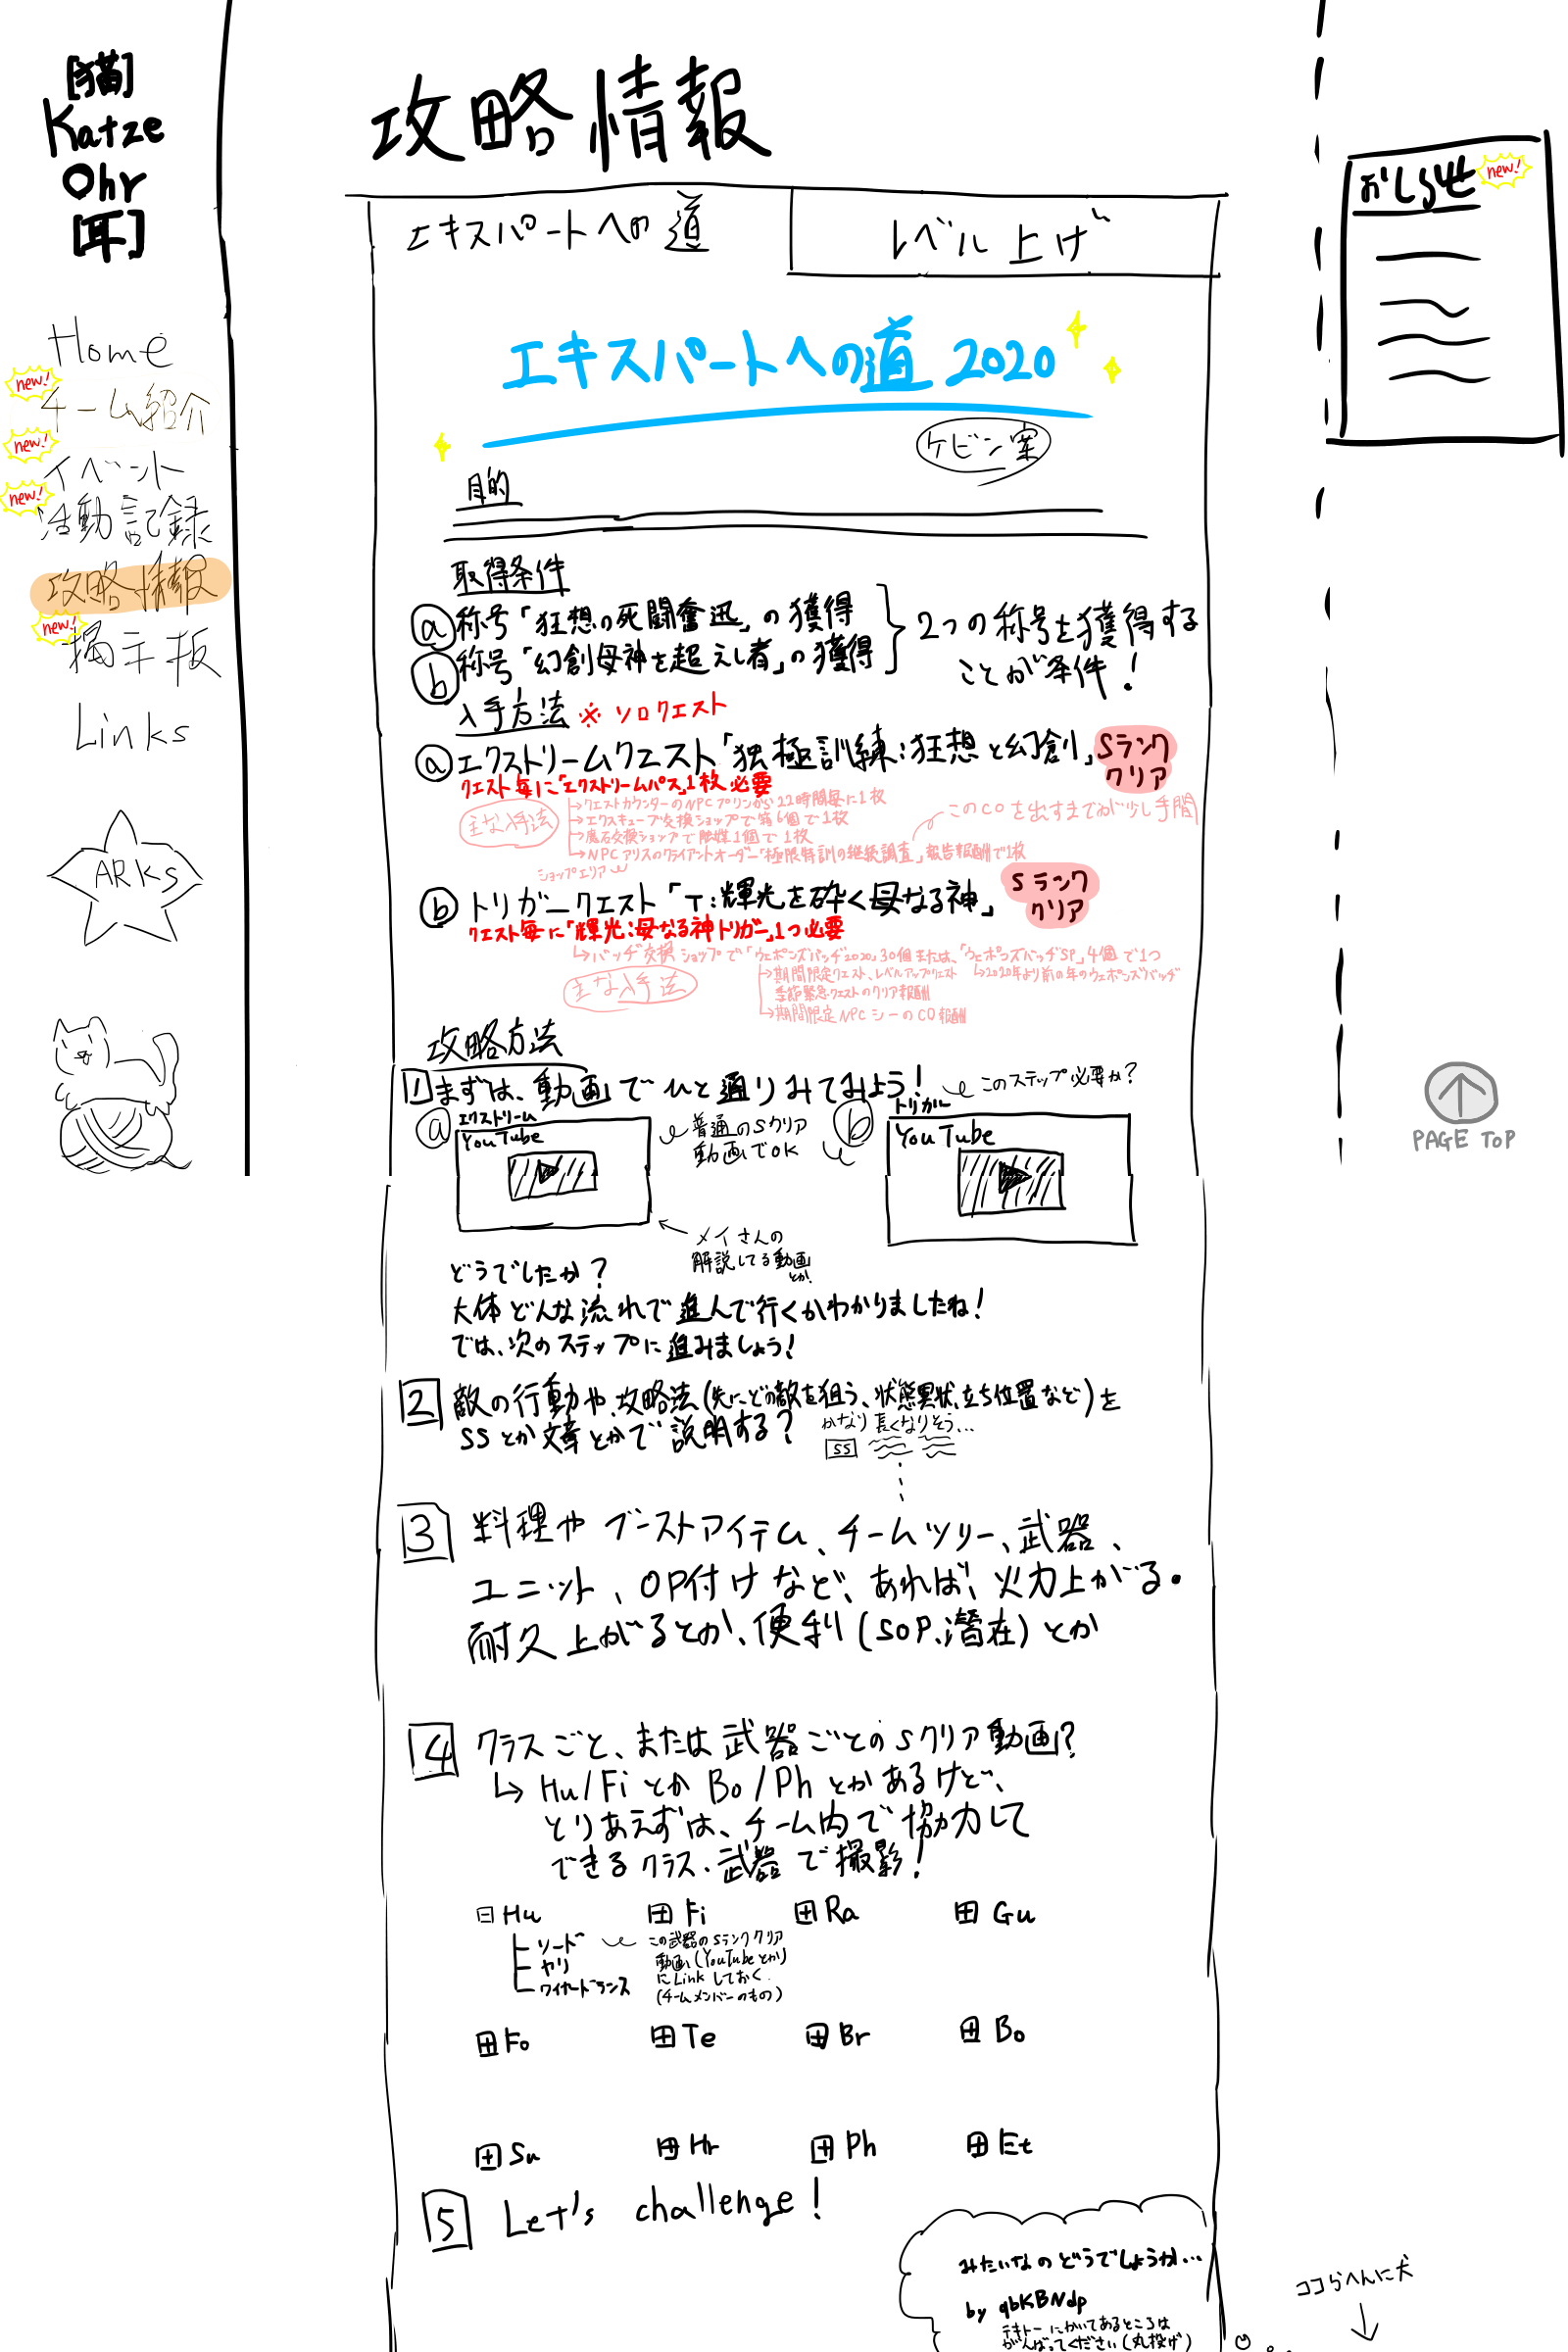 [猫]
Katze
Ohr
[耳]
Home
new!
チーム紹介
new!
イベント
new!
活動記録
攻略情報
new!
掲示板
Links
ARKS
攻略情報
エキスパートへの道
レベル上げ
エキスパートへの道 2020
ケビン案
目的
取得条件
ⓐ称号「狂想の死闘奮迅」の獲得
ⓑ称号「幻創母神を超えし者」の獲得
2つの称号を獲得する
ことが条件!
入手方法 ※ソロクエスト
ⓐエクストリームクエスト「独極訓練:狂想と幻創」Sランク
クリア
クエスト毎に「エクストリームパス」1枚必要
主な入手法
→クエストカウンターのNPCプリンから22時間毎に1枚
→エクスキューブ交換ショップで箱6個で1枚
→魔石交換ショップで触媒1個で1枚
→NPCアリスのクライアントオーダー「極限特訓の継続調査」報告報酬で1枚
このCOを出すまでが少し手間
ショップエリア
ⓑトリガークエスト「T:輝光を砕く母なる神」
Sランク
クリア
クエスト毎に「輝光:母なる神トリガー」1つ必要
→バッヂ交換ショップで「ウェポンズバッヂ2020」30個または、「ウェポンズバッヂSP」4個で1つ
主な入手法
→期間限定クエスト、レベルアップクエスト
季節緊急クエストのクリア報酬
→期間限定NPCシーのCO報酬
→2020年より前の年のウェポンズバッヂ
攻略方法
1 まずは、動画でひと通りみてみよう!
このステップ必要か?
ⓐ エクストリーム
YouTube
普通のSクリア
動画でOK
ⓑ トリガー
YouTube
メイさんの
解説してる動画
とか
どうでしたか?
大体どんな流れで進んで行くかわかりましたね!
では、次のステップに進みましょう!
2 敵の行動や、攻略法(先にどの敵を狙う、状態異状、立ち位置など)を
SSとか文章とかで説明する?
かなり長くなりそう...
SS
3 料理やブーストアイテム、チームツリー、武器、
ユニット、OP付けなど、あれば、火力上がる。
耐久上がるとか、便利(SOP、潜在)とか
4 クラスごと、または武器ごとのSクリア動画?
↳Hu/FiとかBo/Phとかあるけど、
とりあえずは、チーム内で協力して
できるクラス、武器で撮影!
⊟Hu
⊞Fi
⊞Ra
⊞Gu
ソード
ヤリ
ワイヤードランス
この武器のSランククリア
動画(YouTubeとか)
にLinkしておく
(チームメンバーのもの)
⊞Fo
⊞Te
⊞Br
⊞Bo
⊞Su
⊞Hr
⊞Ph
⊞Et
5 Let's challenge!
みたいなのどうでしょうか...
by qbKBNdp
テキトーにかいてあるところは
がんばってください(丸投げ)
ココらへんに犬
おしらせ
new!
PAGE TOP